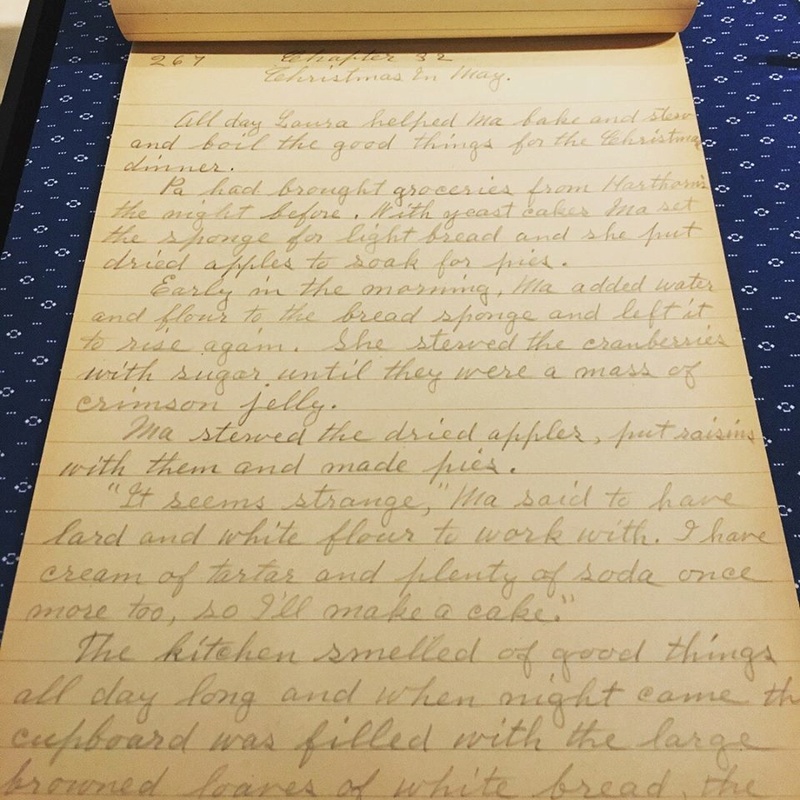 267 Chapter 32
Christmas In May.
All day Laura helped Ma bake and stew
and boil the good things for the Christmas
dinner.
Pa had brought groceries from Harthorn's
the night before. With yeast cakes Ma set
the sponge for light bread and she put
dried apples to soak for pies.
Early in the morning, Ma added water
and flour to the bread sponge and left it
to rise again. She stewed the cranberries
with sugar until they were a mass of
crimson jelly.
Ma stewed the dried apples, put raisins
with them and made pies.
"It seems strange," Ma said to have
lard and white flour to work with. I have
cream of tartar and plenty of soda once
more too, so I'll make a cake."
The kitchen smelled of good things
all day long and when night came th
cupboard was filled with the large
browned loaves of white bread, the